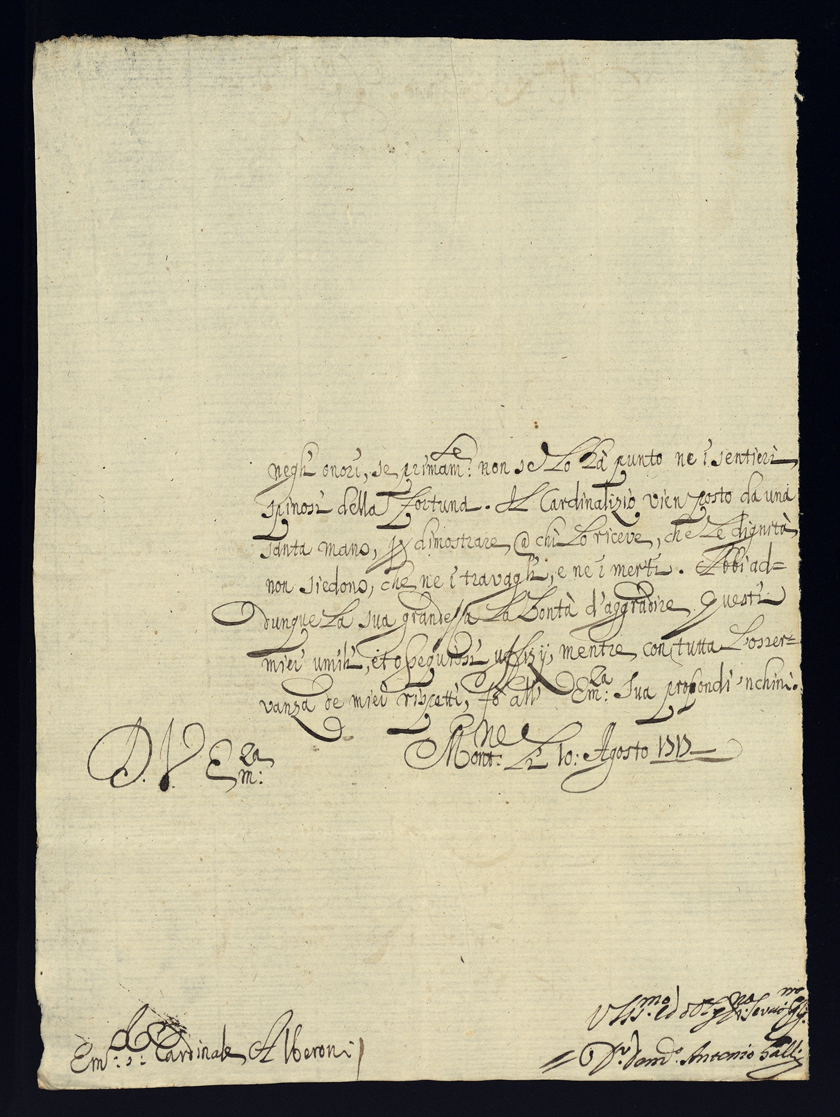 negl'onori, se primam:te non se Lo hà punto ne i sentieri
spinosi della Fortuna. Il Cardinalizio vien posto da una
santa mano, p dimostrare @ chi Lo riceve, che Le dignità
non siedono, che ne i travagli, e ne i merti. Abbi ad=
dunque La sua grandezza La bontà d'aggradire questi
miei umili, et ossequiosi uffizij, mentre con tutta L'osser=
vanza de miei rispetti, fo all' Em:za Sua profondi inchini.
D. V. Em:za
Mont:ne Li 10: Agosto 1717
Em: S: Cardinale Alberoni
Antonio Galli